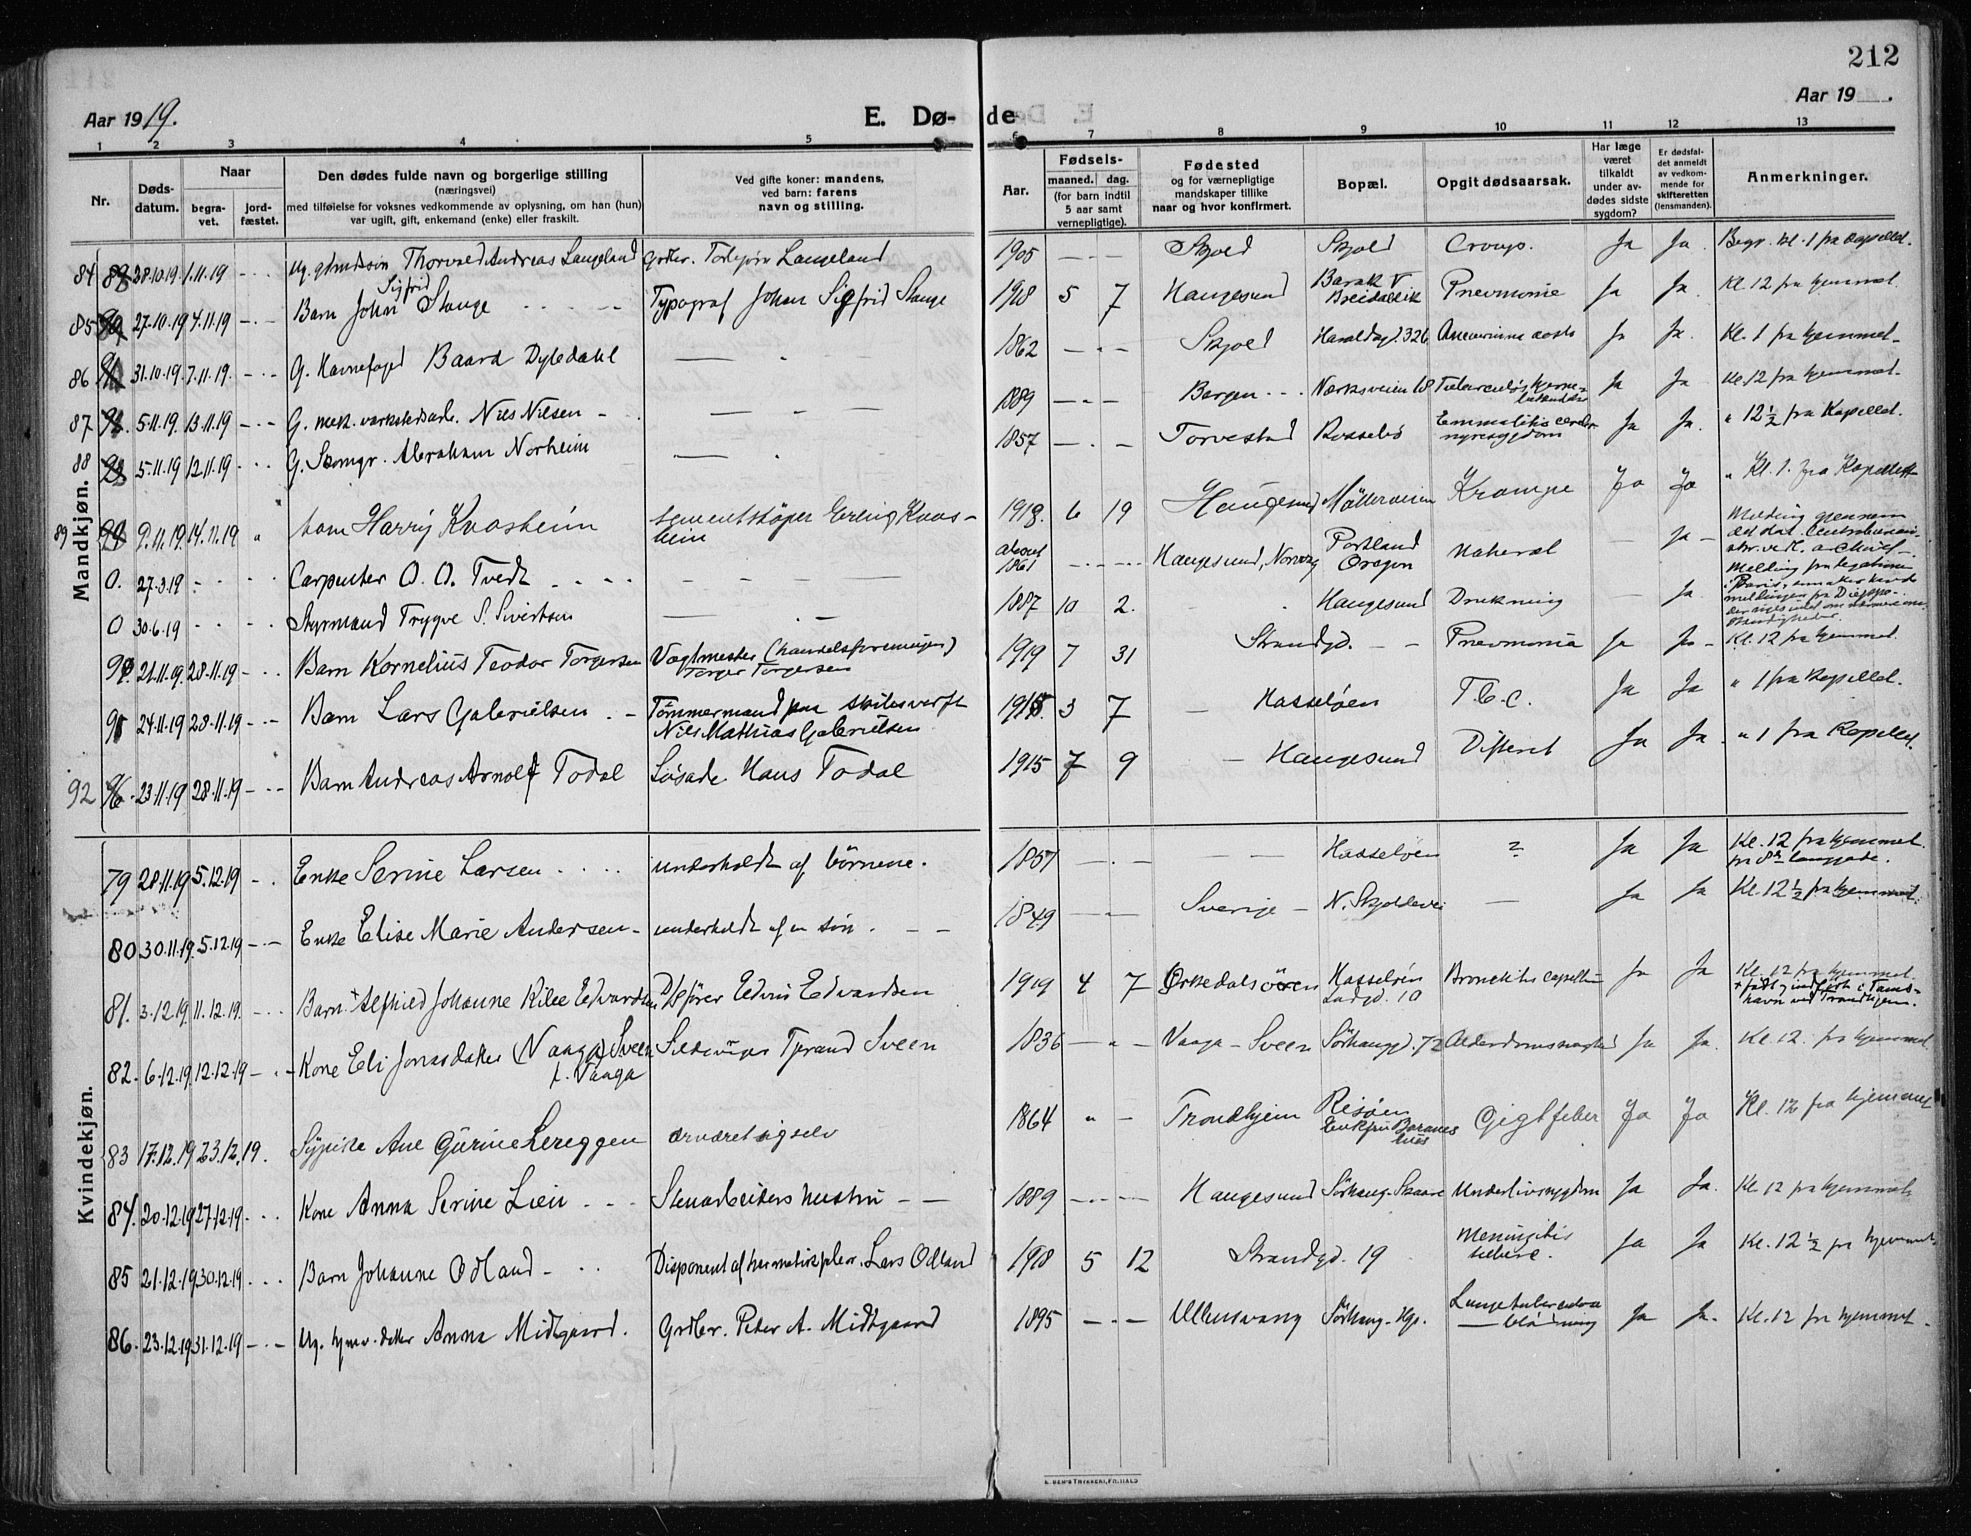 212
Aar 1919.
E. Dø- de
Aar 19 .
1 2 3 4 5 6 7 8 9 10 11 12 13
Nr.
Døds-datum.
Naar
begra-vet.
jord-fæstet.
Den dødes fulde navn og borgerlige stilling
(næringsvei)
med tilføielse for voksnes vedkommende av oplysning, om han (hun)
var ugift, gift, enkemand (enke) eller fraskilt.
Ved gifte koner: mandens,
ved barn: farens
navn og stilling.
Aar.
Fødsels-
maaned. dag.
(for barn indtil
5 aar samt
vernepligtige).
Fødested
og for værnepligtige
mandskaper tillike
naar og hvor konfirmert.
Bopæl.
Opgit dødsaarsak.
Har læge
været
tilkaldt
under av-
dødes sidste
sygdom?
Er dødsfal-
det anmeldt
av vedkom-
mende for
skifteretten
(lensmanden).
Anmerkninger.
Mandkjøn.
84 28.10.19 1.11.19 Ug. gbrukssøn Thorvald Andreas Langeland Grdbr. Torbjørn Langeland 1905 Skjold Skjold Croup. Ja Ja. Begr. kl. 1 fra Kapellet.
85 27.10.19 4.11.19 Barn John Sigfrid Stange Typograf Johan Sigfrid Stange 1918 5 7 Haugesund Barak V Breidablik Pnevmonie Ja Ja. Kl. 12 fra hjemmet.
86 31.10.19. 7.11.19. G. Havnefoged Baard Dybdahl 1862 Skjold Haraldsgd. 326 Aneurisma aorta Ja Ja. Kl. 1 fra hjemmet.
87 5.11.19. 13.11.19 G. mek. verkstedsarb. Nils Nilsen 1889 Bergen Verksveien 18 Tuberculøs hjerne- Ja Ja. Kl. 12 fra hjemmet.
88 5.11.19 12.11.19 G. Skomgr. Abraham Norheim 1857 Torvestad Rossebø nyresygdom Ja Ja. " 12½ fra Kapellet.
89 9.11.19. 14.11.19 " barn Harry Kvasheim sementstøper Erling Kvas-heim 1918. 6 19 Haugesund Møllerveien Krampe Ja Ja " Kl. 1. fra Kapellet
0. 27.3.19 Carpenter O. O. Tvedt about 1861 Haugesund, Norway Portland Oregon Natural — Ja — Melding gjennem det stat. Centralbureau
0 30.6.19 Styrmand Trygve S. Sivertsen 1887 10 2. Haugesund Drukning — Ja. Melding fra legationen i Paris,
90. 21.11.19. 28.11.19 Barn Kornelius Teodor Torgersen Vagtmester (handelsforeningen) Torger Torgersen 1919 7 31 Strandgd. Pnevmonia Ja Ja Kl. 12 fra hjemmet.
91 24.11.19 28.11.19 Barn Lars Gabrielsen Tømmermand paa skibsverft Nils Mathias Gabrielsen 1915. 3 7 Hasseløen T.b.c. Ja Ja " 1 fra Kapellet.
92 23.11.19 28.11.19 Barn Andreas Arnolf Todal Løsarb. Hans Todal 1915 7 9 Haugesund Difterit Ja Ja. " 1 fra Kapellet.
Kvindekjøn.
79 28.11.19 5.12.19 Enke Serine Larsen underholdt af børnene. 1857 Hasseløen ? Ja Ja Kl. 12 fra hjemmet.
80 30.11.19. 5.12.19 Enke Elise Marie Andersen underholdt af en søn. 1849 Sverige N. Skjoldevei — Ja Ja Kl. 12½ fra hjemmet.
81. 3.12.19. 11.12.19. Barn + Alfhild Johanne Rilee Edvardsen D/S fører Edvin Edvardsen 1919 4 7 Ørkedalsøren Hasseløen Ladgd. 10 Bronchitis capellær Ja Ja Kl. 12 fra hjemmet. + født og indført i Tams-havn ved Trondhjem.
82. 6.12.19. 12.12.19 Kone Eli Jonasdatter (Vaaga) Sveen f. Vaaga Tjerand Sveen 1836 Vaaga - Sveen Sørhauggd. 72 Alderdomssvaghed Ja Ja. Kl. 12. fra hjemmet.
83 17.12.19 23.12.19. Sypike Ane Gurine Lereggen ernæret sig selv 1864 Trondhjem Risøen Gigtfeber Ja Ja Kl. 12 fra hjemmet
84. 20.12.19 27.12.19 Kone Anna Serine Lien Stenarbeiders hustru 1889 Haugesund Sørhaug-Skaare Underlivssygdom Ja Ja. Kl. 12 fra hjemmet
85 21.12.19 30.12.19 Barn Johanne Odland Disponent af hermetikfabr. Lars Odland 1918 5 12 Strandgd. 19 Meningitis Ja Ja Kl. 12½ fra hjemmet.
86. 23.12.19 31.12.19 Ug. hjmv. datter Anna Midtgaard. Grdbr. Peter A. Midtgaard 1895 Ullensvang Sørhaug - Hgs. Lungetuberculose blødning Ja Ja. Kl. 12 fra hjemmet.